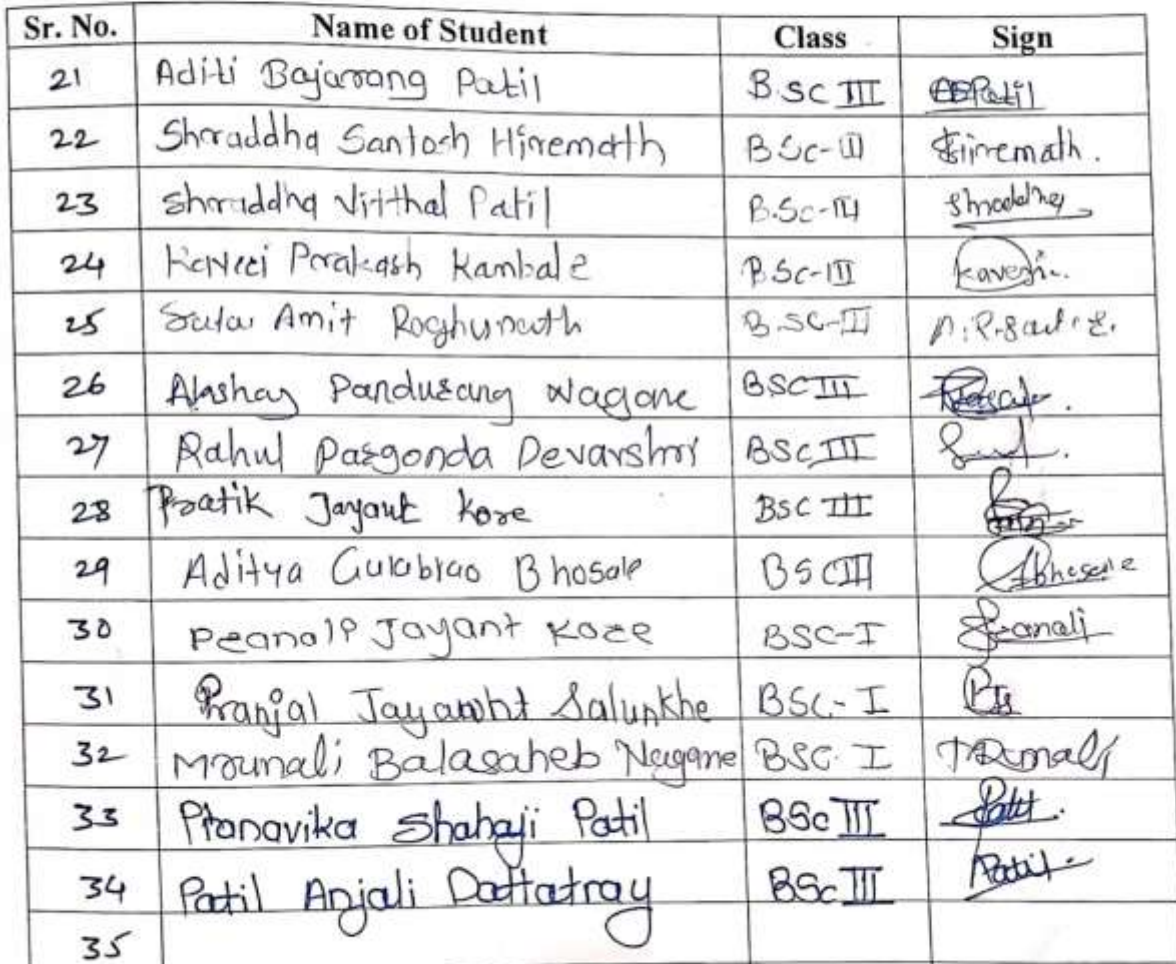 Sr. No. Name of Student Class Sign
21 Aditi Bajarang Patil B.SC III ABPatil
22 Shraddha Santosh Hiremath B.Sc-III Hiremath.
23 Shraddha Vitthal Patil B.Sc-III Shraddha
24 Kaveri Prakash Kambale B.Sc-III Kaveri
25 Amit Raghunath B.SC-III
26 Akshay Pandurang Nagane BSC III
27 Rahul Pargonda Devarshi BSC III
28 Pratik Jayant Kore BSC III
29 Aditya Gulabrao Bhosale BSCIII Abhosale
30 Pranali Jayant Kore BSC-I Pranali
31 Pranjal Jayawant Salunkhe BSC-I
32 Mrunali Balasaheb Nagane BSC-I
33 Pranavika Shahaji Patil BSc III Patil.
34 Patil Anjali Dattatray BSc III Patil
35